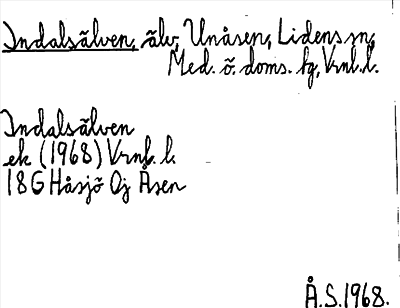 Indalsälven, älv, Unåsen, Lidens sn,
Med. ö. doms. tg, Vrnl. l.
Indalsälven
ek (1968) Vrnl. l.
18G Håsjö 0j Åsen
Å.S. 1968.